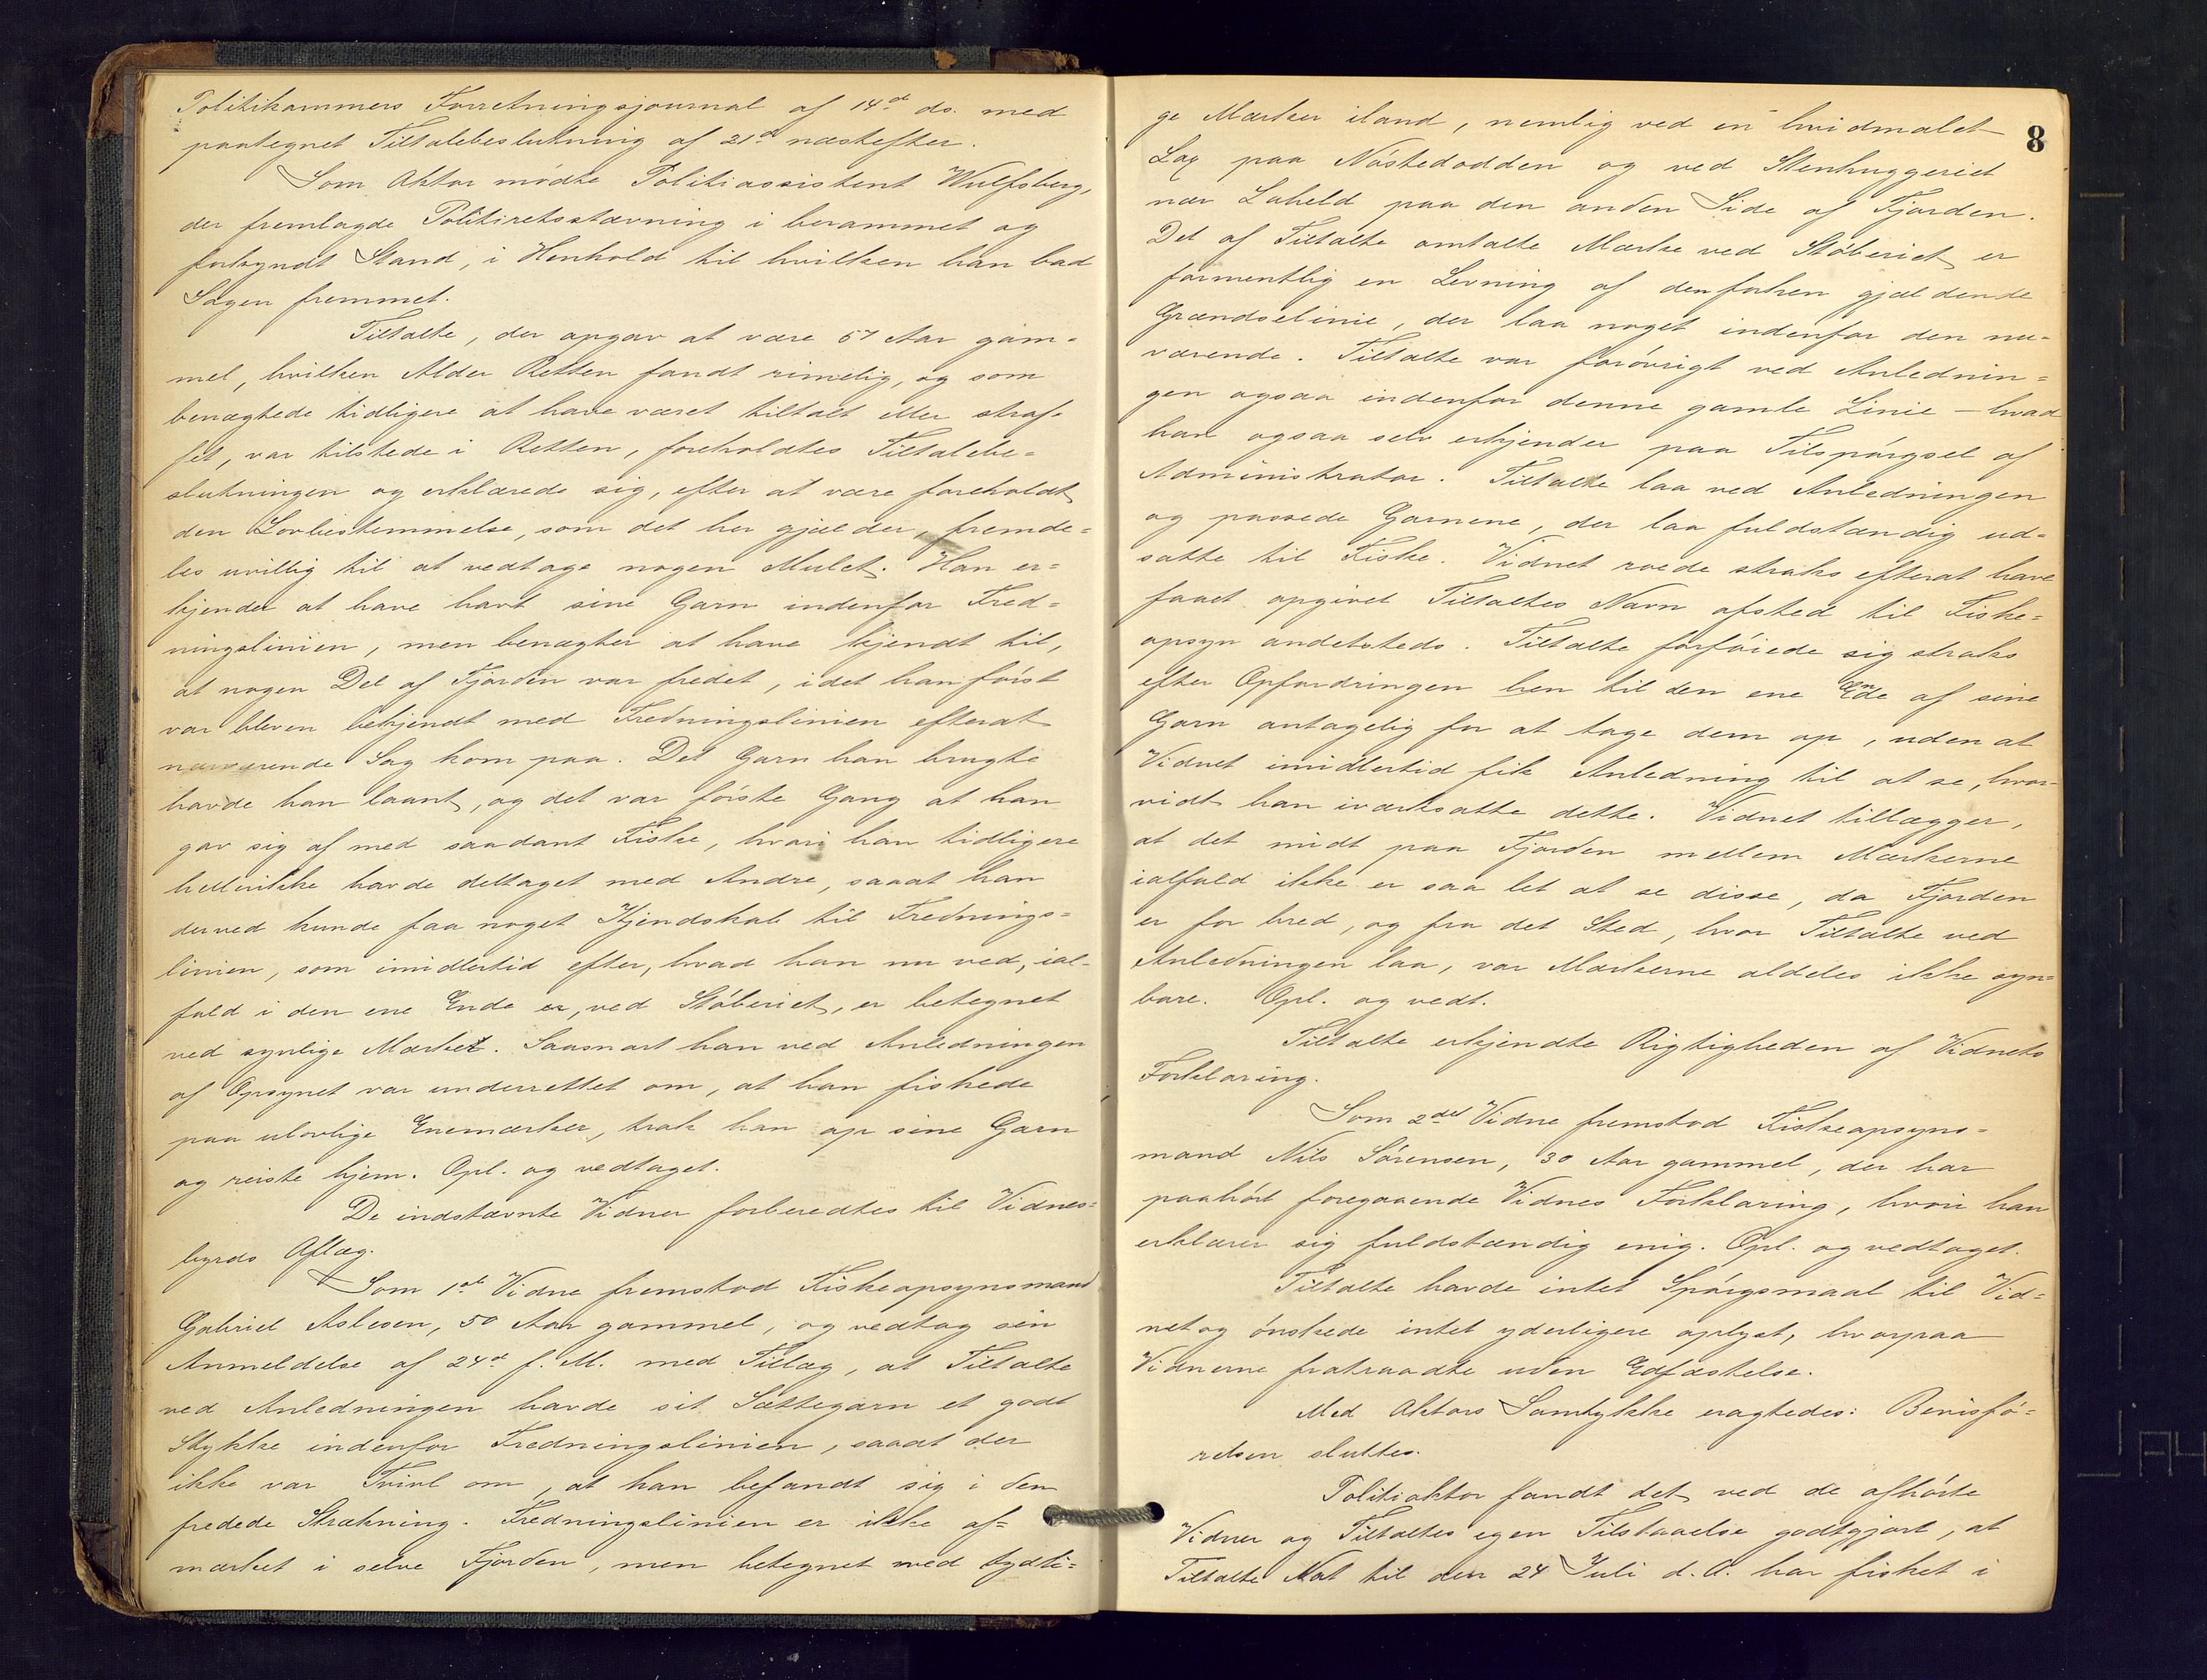 Politikammers Forretningsjournal af 14de ds. med
paategnet Tiltalebeslutning af 21de næstefter.
Som Aktor mødte Politiassistent Wulfsberg,
der fremlagde Politiretsstævning i berammet og
forkyndt Stand, i Henhold til hvilken han bad
Sagen fremmet.
Tiltalte, der opgav at være 57 Aar gam=
mel, hvilken Alder Retten fandt rimelig, og som
benægtede tidligere at have været tiltalt eller straf=
fet, var tilstede i Retten, foreholdtes Tiltalebe=
slutningen og erklærede sig, efter at være foreholdt
den Lovbestemmelse, som det her gjælder, fremde=
les uvillig til at vedtage nogen Mulct. Han er=
kjender at have havt sine Garn indenfor Fred=
ningslinien, men benægter at have kjendt til,
at nogen Del af Fjorden var fredet, idet han først
var bleven bekjendt med Fredningslinien efterat
nærværende Sag kom paa. Det Garn han brugte
havde han laant, og det var første Gang at han
gav sig af med saadant Fiske, hvori han tidligere
hellerikke havde deltaget med Andre, saaat han
derved kunde faa noget Kjendskab til Frednings=
linien, som imidlertid efter, hvad han nu ved, ial=
fald i den ene Ende er, ved Støberiet, er betegnet
ved synlige Mærker. Saasnart han ved Anledningen
af Opsynet var underrettet om, at han fiskede
paa ulovlige Enemærker, trak han op sine Garn
og reiste hjem. Opl. og vedtaget.
De indstævnte Vidner forberedtes til Vidnes=
byrds Aflæg.
Som 1ste Vidne fremstod Fiskeopsynsmand
Gabriel Aslesen, 50 Aar gammel, og vedtog sin
Anmeldelse af 24de f. M. med Tillæg, at Tiltalte
ved Anledningen havde sit Sættegarn et godt
Stykke indenfor Fredningslinien, saaat der
ikke var Tvivl om, at han befandt sig i den
fredede Strækning. Fredningslinien er ikke af=
mærket i selve Fjorden, men betegnet ved tydeli=
8
ge Mærker iland, nemlig ved en hvidmalet
Lax paa Nøstedodden og ved Stenhuggeriet
nær Laheld paa den anden Side af Fjorden.
Det af Tiltalte omtalte Mærke ved Støberiet er
formentlig en Levning af den forhen gjældende
Grændselinie, der laa noget indenfor den nu=
værende. Tiltalte var forøvrigt ved Anlednin=
gen ogsaa indenfor denne gamle Linie – hvad
han ogsaa selv erkjender paa Tilspørgsel af
Administrator. Tiltalte laa ved Anledningen
og passede Garnene, der laa fuldstændig ud=
satte til Fiske. Vidnet roede straks efterat have
faaet opgivet Tiltaltes Navn afsted til Fiske=
opsyn andetsteds. Tiltalte forføiede sig straks
efter Opfordringen hen til den ene Ende af sine
Garn antagelig for at tage dem op, uden at
Vidnet imidlertid fik Anledning til at se, hvor=
vidt han iværksatte dette. Vidnet tillægger,
at det midt paa Fjorden mellem Mærkerne
ialfald ikke er saa let at se disse, da Fjorden
er for bred, og fra det Sted, hvor Tiltalte ved
Anledningen laa, var Mærkerne aldeles ikke syn=
bare. Opl. og vedt.
Tiltalte erkjendte Rigtigheden af Vidnets
Forklaring.
Som 2det Vidne fremstod Fiskeopsyns=
mand Nils Sørensen, 30 Aar gammel, der har
paahørt foregaaende Vidnes Forklaring, hvori han
erklærer sig fuldstændig enig. Opl. og vedtaget.
Tiltalte havde intet Spørgsmaal til Vid=
net og ønskede intet yderligere oplyst, hvorpaa
Vidnerne fratraadte uden Edfæstelse.
Med Aktors Samtykke eragtedes: Bevisfø=
relsen sluttes.
Politiaktor fandt det ved de afhørte
Vidner og Tiltaltes egen Tilstaaelse godtgjort, at
Tiltalte Nat til den 24 Juli d. A. har fisket i